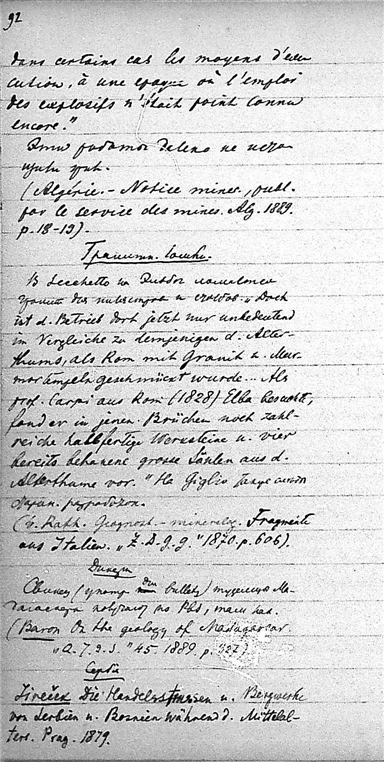 92
dans certains cas les moyens d'exé
cution, à une époque où l'emploi
des explosifs n'était point connu
encore."
Эти работы далеко не
(Algérie. - Notice miner., publ.
par le service des mines. Alg. 1889.
p. 18-19).
В Secchetto на Эльбе
"Doch
ist d. Betrieb dort jetzt nur unbedeutend
im Vergleiche zu demjenigen d. Alter-
thums, als Rom mit Granit u. Mar-
mortempeln geschmückt wurde... Als
prof. Carpi aus Rom (1828) Elba besuchte,
fand er in jenen Brüchen noch zahl-
reiche halbfertige Werksteine u. vier
bereits behauene grosse Säulen aus d.
Alterthume vor." На Giglio также
разработок.
(v. Rath. Geognost. - mineralog. Fragmente
aus Italien. "Z. D. g. G." 1870. p. 606).
Свинец (bullets) туземцы Ма-
получают из PbS,
(Baron On the geology of Madagascar.
"Q. J. G. S." 45. 1889. p. 327).
Сербия
Jireček Die Handelsstrassen u. Bergwerke
von Serbien u. Bosnien während d. Mittelal-
ters. Prag. 1879.